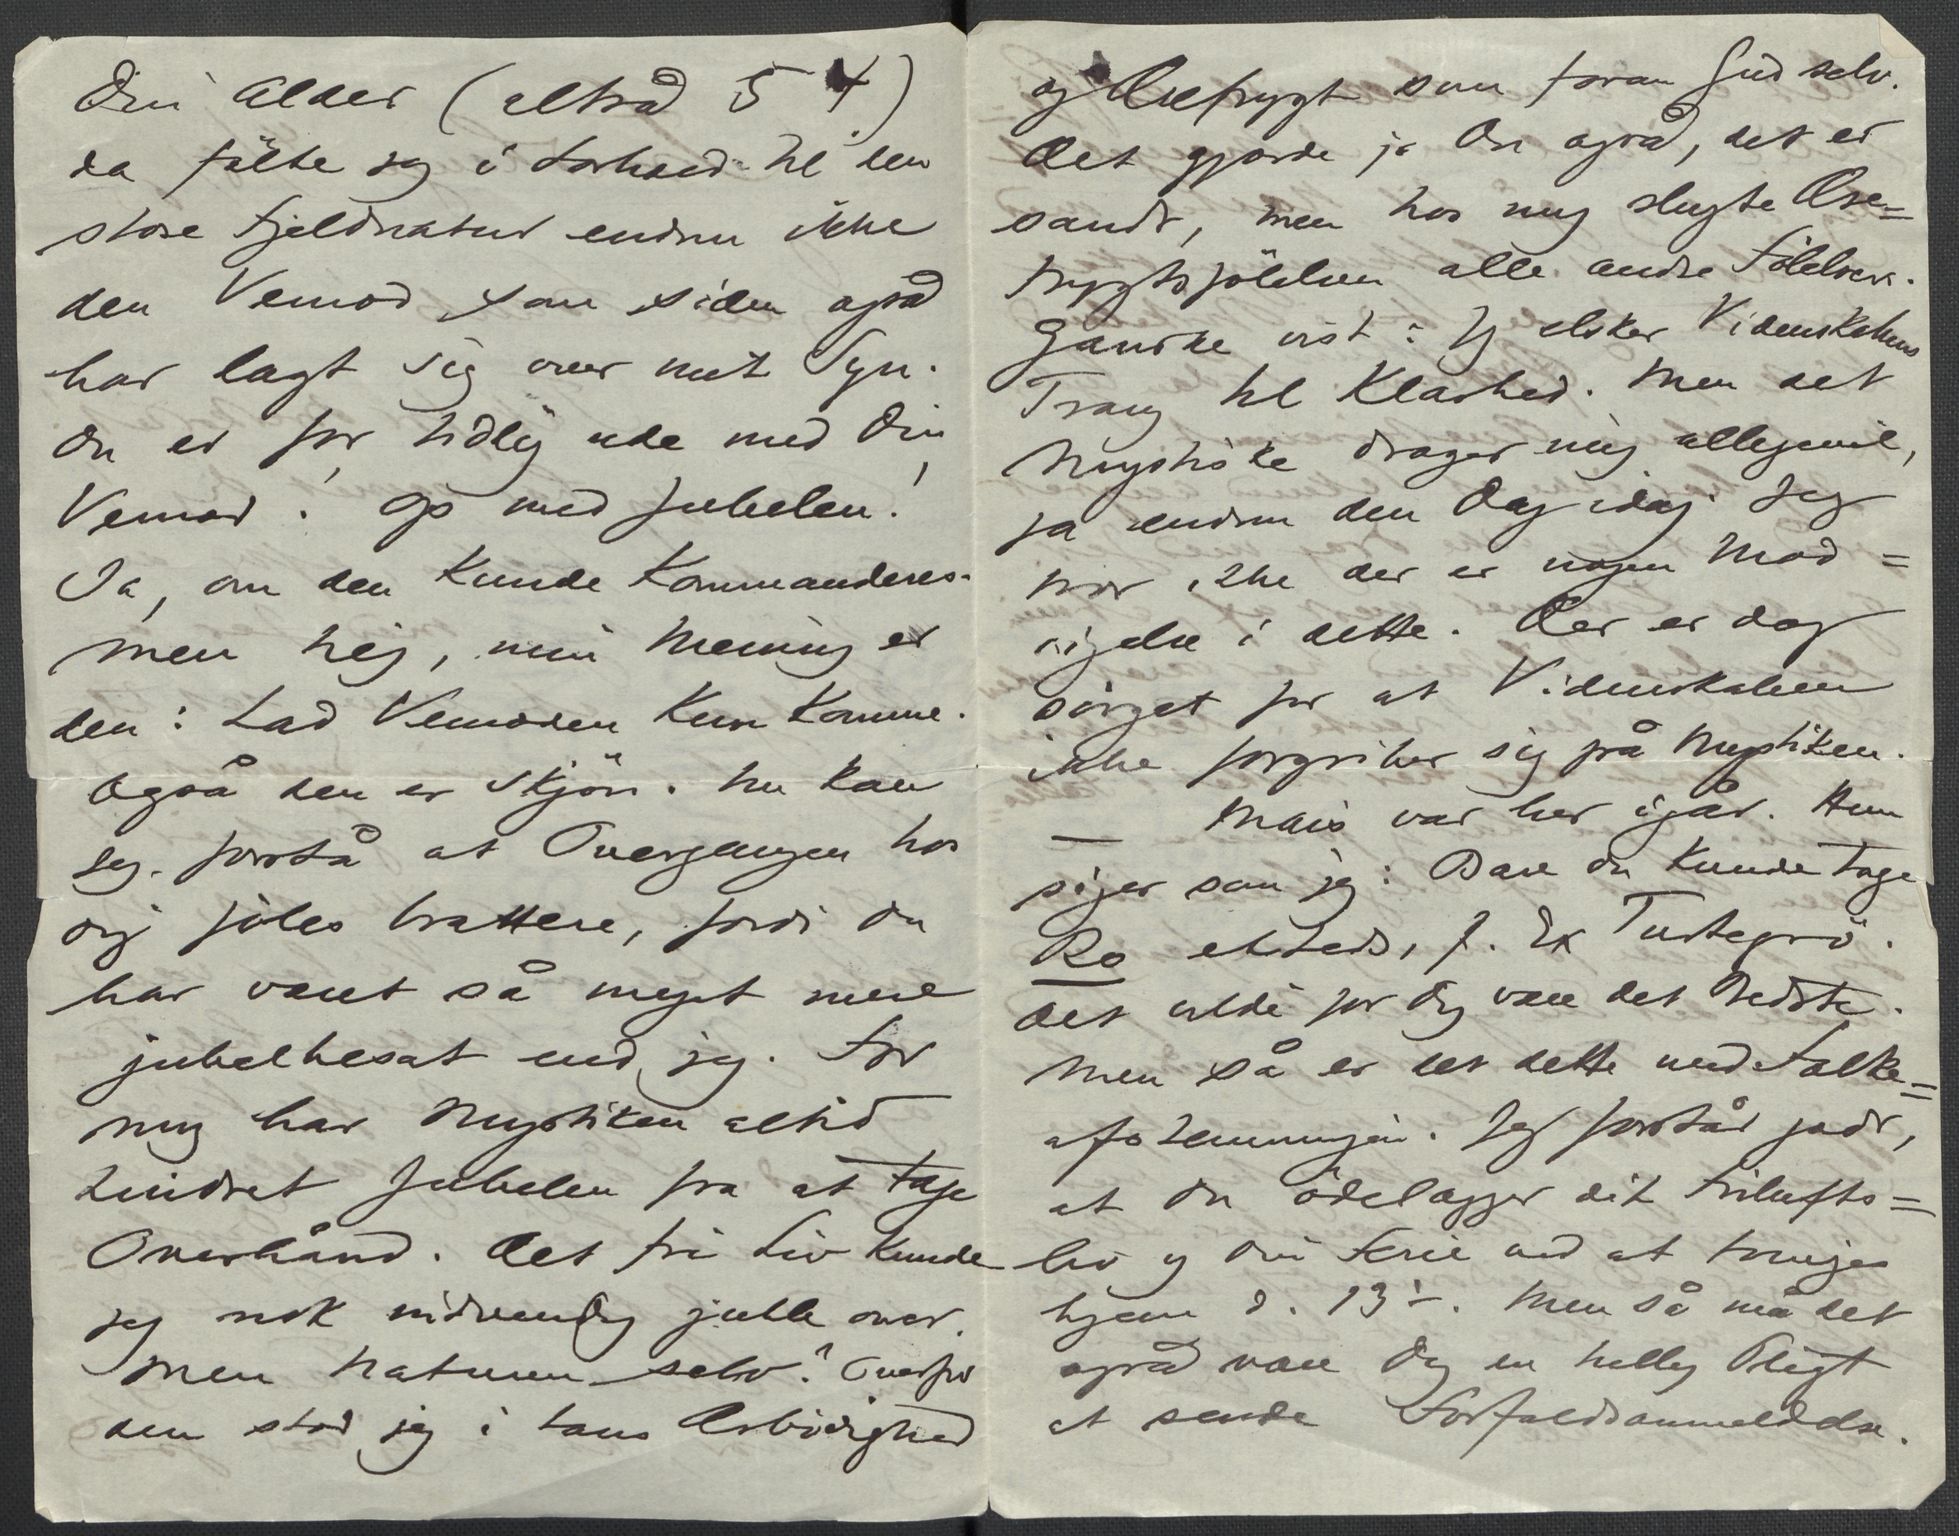 Din Alder (altså 54)
da følte jeg i Forhold til den
store Fjeldnatur endnu ikke
den Vemod som siden også
har lagt sig over mit Syn.
Du er for tidlig ude med Din
Vemod! Op med Jubelen!
Ja, om den kunde kommanderes.
Men nej, min Mening er
den: Lad Vemoden kun komme.
Også den er skjön. Nu kan
jeg forstå at Overgangen hos
dig föles brattere, fordi du
har været så meget mere
jubelbesat end jeg. For
mig har Mystiken altid
hindret Jubelen fra at tage
Overhånd. Det fri Liv kunde
jeg nok nidvendig juble over.
Men Naturen selv? Overfor
den stod jeg i taus Ærbödighed
og Ærefrygt som foran Gud selv.
Det gjorde jo Du også, det er
sandt, men hos mig slugte Ære=
frygtsfölelsen alle andre Fölelser.
Ganske vist: Jeg elsker Videnskabens
Trang til Klarhed. Men det
Mystiske drager mig alligevel,
ja endnu den Dag idag. Jeg
tror ikke der er nogen Mod=
sigelse i dette. Der er dog
sörget for at Videnskaben
ikke forgriber sig på Mystiken.
— Mais var her igår. Hun
siger som jeg: Bare du kunde tage
Ro etsteds, f. Ex Turtegrö.
Det vilde for Dig være det Bedste.
Men så er det dette med Folke=
afstemningen. Jeg forstår godt,
at du ödelægger dit Frilufts=
liv og din Ferie ved at tvinges
hjem d. 13de. Men så må det
også være Dig en hellig Pligt
at sende Forfaldsanmeldelse.